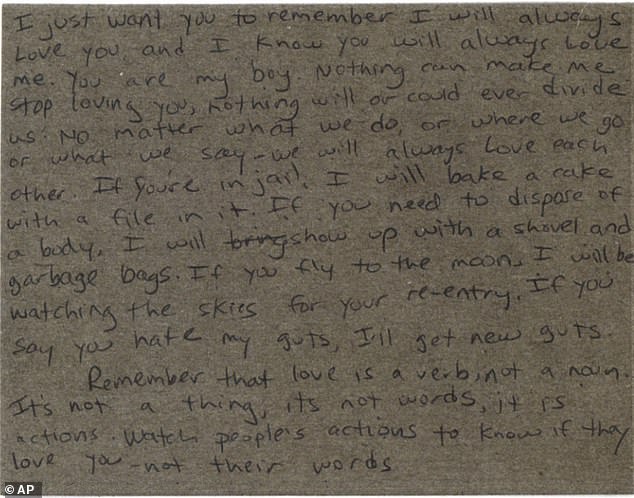 I just want you to remember I will always
Love you, and I know you will always Love
me. You are my boy. Nothing can make me
stop loving you, nothing will or could ever divide
us. No matter what we do, or where we go
or what we say - we will always Love each
other. If you're in jail, I will bake a cake
with a file in it. If you need to dispose of
a body, I will bring show up with a shovel and
garbage bags. If you fly to the moon, I will be
watching the skies for your re-entry. If you
say you hate my guts, I'll get new guts.
Remember that love is a verb, not a noun.
It's not a thing, its not words, it is
actions. Watch people's actions to know if they
love you - not their words
© AP